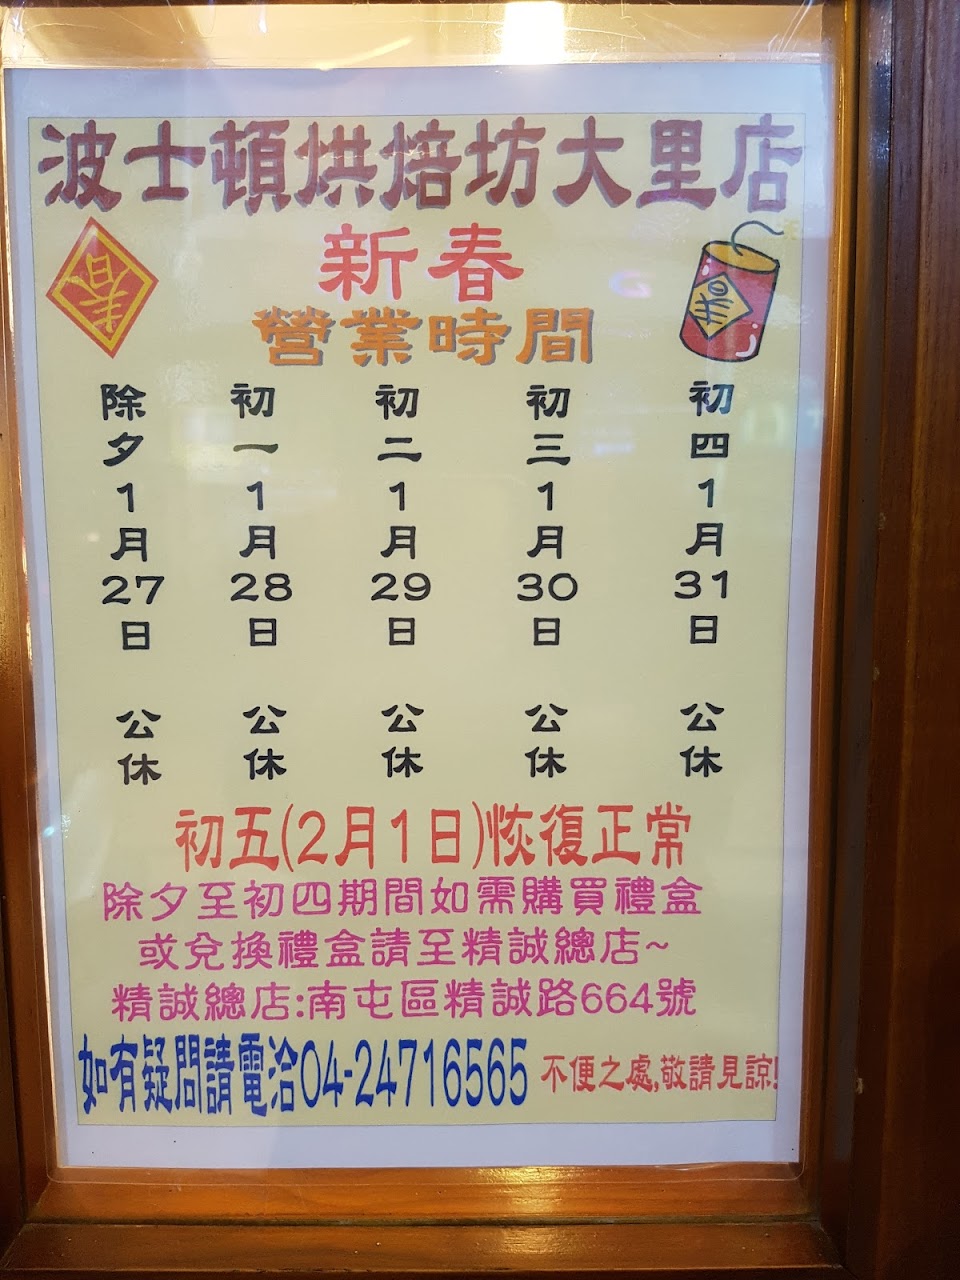 波士頓烘焙坊大里店
新春
春
春
營業時間
除夕1月27日 公休
初一1月28日 公休
初二1月29日 公休
初三1月30日 公休
初四1月31日 公休
初五(2月1日)恢復正常
除夕至初四期間如需購買禮盒
或兌換禮盒請至精誠總店~
精誠總店:南屯區精誠路664號
如有疑問請電洽04-24716565 不便之處,敬請見諒!